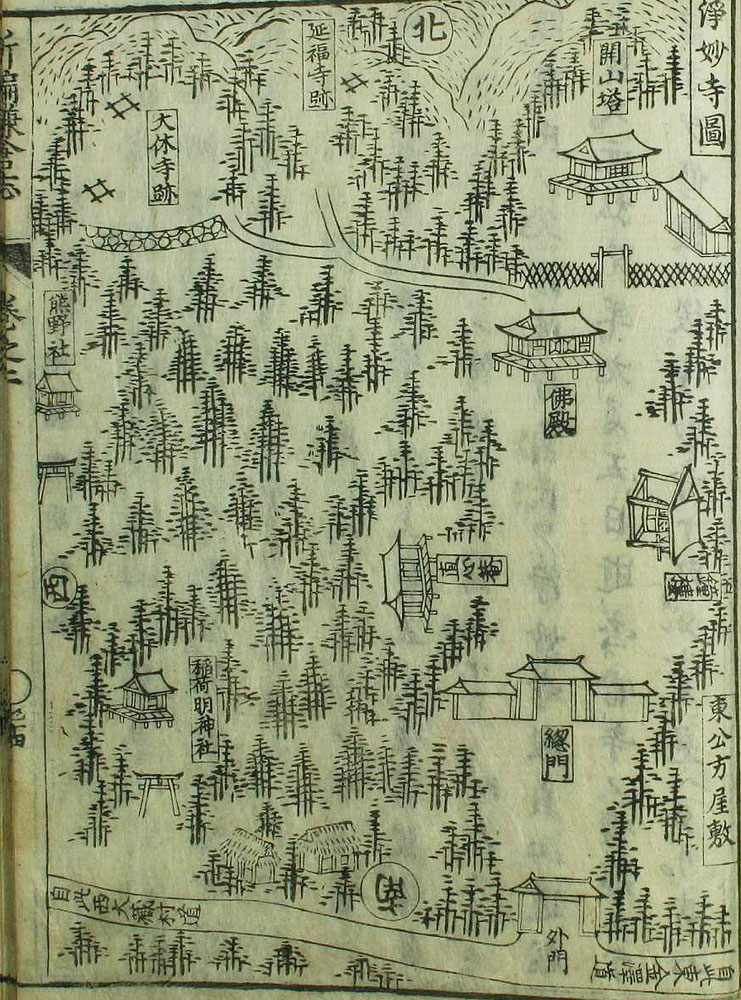 淨妙寺圖
開山塔
北
延福寺跡
大休寺跡
新編鎌倉志
卷之二
熊野社
佛殿
西
直心菴
鐘樓
稲荷明神社
総門
東公方屋敷
南
自此西大藏村道
外門
自此東金澤道